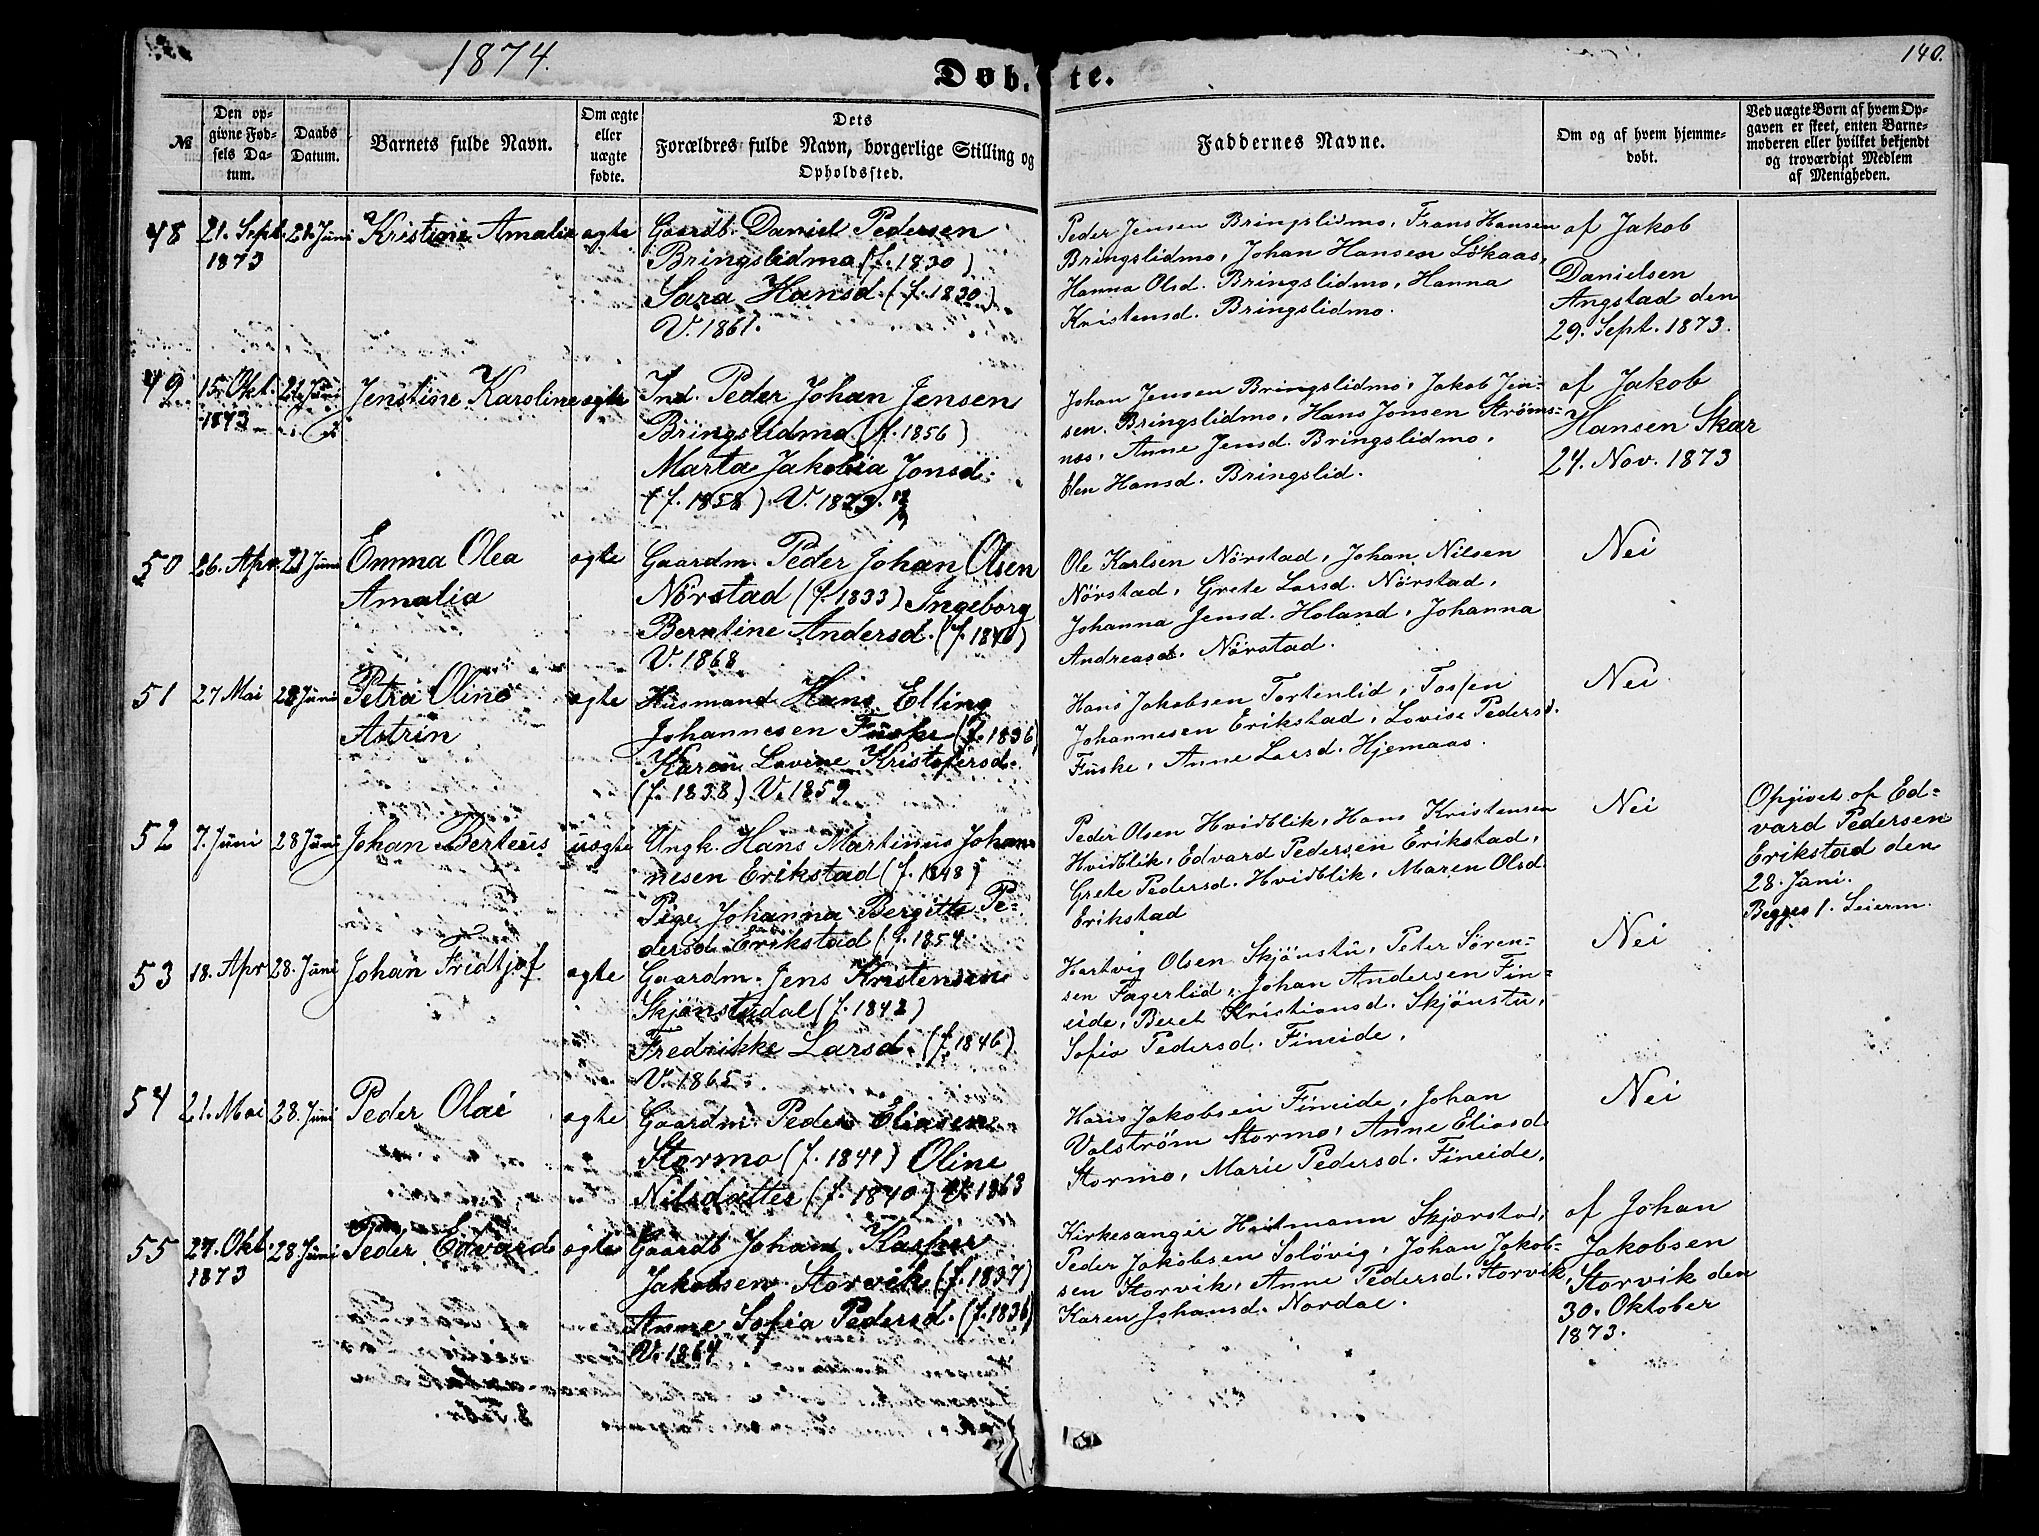 1874.
Døbte.
140.
№
Den op-
givne Fød-
sels Da-
tum.
Daabs
Datum.
Barnets fulde Navn.
Om ægte
eller
uægte
fødte.
Dets
Forældres fulde Navn, borgerlige Stilling og
Opholdssted.
Faddernes Navne.
Om og af hvem hjemme-
døbt.
Ved uægte Børn af hvem Op-
gaven er skeet, enten Barne-
moderen eller hvilket bekjendt
og troværdigt Medlem
af Menigheden.
48
21. Sept.
1873
21. Juni
Kristine Amalia
ægte
Gaardb. Daniel Pedersen
Bringslidmo (f. 1830)
Sara Hansd. (f. 1830)
V. 1861.
Peder Jensen Bringslidmo, Frans Hansen
Bringslidmo, Johan Hansen Løkaas,
Hanna Olsd. Bringslidmo, Hanna
Kristensd. Bringslidmo.
af Jakob
Danielsen
Angstad den
29. Sept. 1873.
49
15. Okt.
1873
21 Juni
Jenstine Karoline
ægte
Ind. Peder Johan Jensen
Bringslidmo (f. 1856)
Marta Jakobia Jonsd.
(f. 1858) V. 1873.
Johan Jensen Bringslidmo, Jakob Jen-
sen Bringslidmo, Hans Jonsen Strøms-
nes, Anne Jensd. Bringslidmo,
Elen Hansd. Bringslid.
af Jakob
Hansen Skar
24. Nov. 1873
50
26. Apr.
21 Juni
Emma Olea
Amalia
ægte
Gaardm. Peder Johan Olsen
Nörstad (f. 1833) Ingeborg
Berntine Andersd.
V. 1868.
Ole Karlsen Nörstad, Johan Nilsen
Nörstad, Grete Larsd. Nörstad,
Johanna Jensd. Holand, Johanna
Andreasd. Nörstad.
Nei
51
27 Mai
28 Juni
Petra Oline
Astrin
ægte
Husmand Hans Elling
Johannesen Fuske (f. 1836)
Karen Lovine Kristofersd.
(f. 1838.) V. 1859
Hans Jakobsen Tortenlid, Tosten
Johannesen Erikstad, Lovise Pedersd.
Fuske, Anne Larsd. Hjemaas.
Nei
52
7. Juni
28 Juni
Johan Berteus
uægte
Ungk. Hans Martinus Johan-
nesen Erikstad (f. 1848)
Pige Johanna Bergitte Pe-
dersd. Erikstad (f. 1854
Peder Olsen Hvidblik, Hans Kristensen
Hvidblik, Edvard Pedersen Erikstad,
Grete Pedersd. Hvidblik, Maren Olsd
Erikstad
Nei
Opgivet af Ed-
vard Pedersen
Erikstad den
28. Juni.
Begges 1. Leierm.
53
18. Apr
28. Juni
Johan Fridtjof
ægte
Gaardm. Jens Kristensen
Skjønstudal (f. 1842)
Fredrikke Larsd. (f. 1846)
V. 1865.
Hartvig Olsen Skjönstu, Peter Sören-
sen Fagerlid, Johan Andersen Fin-
eide, Beret Kristiansd. Skjönstu,
Sofia Pedersd. Fineide.
Nei
54
21. Mai
28. Juni
Peder Olai
ægte
Gaardm. Peder Eliasen
Stormo (f. 1841) Oline
Nilsdatter (f. 1840) V. 1863
Hans Jakobsen Fineide, Johan
Valström Stormo, Anne Eliasd.
Stormo, Marie Pedersd. Fineide.
Nei
55
27. Okt.
1873
28 Juni
Peder Edvard
ægte
Gaardb Johan Kasper
Jakobsen Storvik (f. 1837)
Anne Sofia Pedersd. (f. 1836)
V. 1864
Kirkesanger Hartmann Skjærstad,
Peder Jakobsen Solövig, Johan Jakob-
sen Storvik, Anne Pedersd. Storvik,
Karen Johansd. Nordal.
af Johan
Jakobsen
Storvik den
30. Oktober
1873.